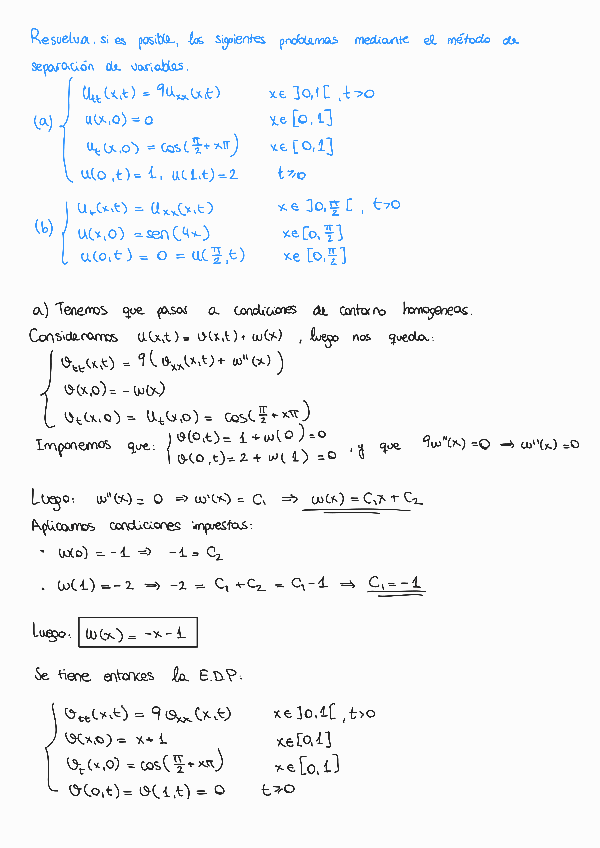 Resuelva, si es posible, los siguientes problemas mediante el método de
separación de variables.
(a) { u_tt(x,t) = 9u_xx(x,t) x∈ ]0,1[ , t>0
u(x,0) = 0 x∈ [0,1]
u_t(x,0) = cos(π/2 + xπ) x∈ [0,1]
u(0,t) = 1, u(1,t) = 2 t≥0
(b) { u_t(x,t) = u_xx(x,t) x∈ ]0,π/2[ , t>0
u(x,0) = sen(4x) x∈[0,π/2]
u(0,t) = 0 = u(π/2,t) x∈[0,π/2]
a) Tenemos que pasar a condiciones de contorno homogeneas.
Consideramos u(x,t) = v(x,t) + w(x) , luego nos queda:
{ v_tt(x,t) = 9(v_xx(x,t) + w''(x))
v(x,0) = -w(x)
v_t(x,0) = u_t(x,0) = cos(π/2 + xπ)
Imponemos que: { v(0,t) = 1 + w(0) = 0
v(0,t) = 2 + w(1) = 0 , y que 9w''(x) = 0 → w''(x) = 0
Luego: w''(x) = 0 ⇒ w'(x) = C₁ ⇒ w(x) = C₁x + C₂
Aplicamos condiciones impuestas:
· w(0) = -1 ⇒ -1 = C₂
· w(1) = -2 ⇒ -2 = C₁ + C₂ = C₁ - 1 ⇒ C₁ = -1
Luego: w(x) = -x - 1
Se tiene entonces la E.D.P:
{ v_tt(x,t) = 9v_xx(x,t) x∈ ]0,1[ , t>0
v(x,0) = x+1 x∈[0,1]
v_t(x,0) = cos(π/2 + xπ) x∈[0,1]
v(0,t) = v(1,t) = 0 t≥0